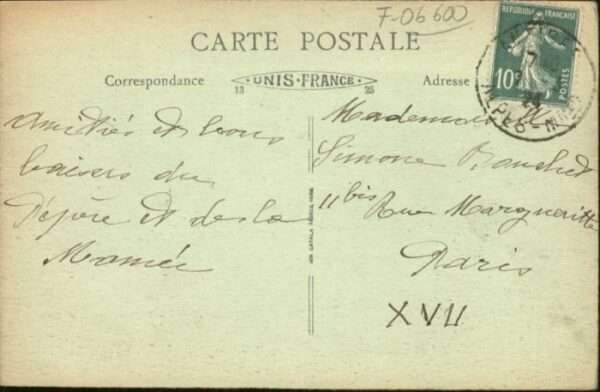 F-06600
CARTE POSTALE
REPUBLIQUE FRANÇAISE
10c
POSTES
Correspondance
UNIS-FRANCE
13 25
Adresse
Amitiés et bons
baisers du
Pépère et de la
Mamée
Mademoiselle
Simone
11 bis Rue Margueritte
Paris
XVII